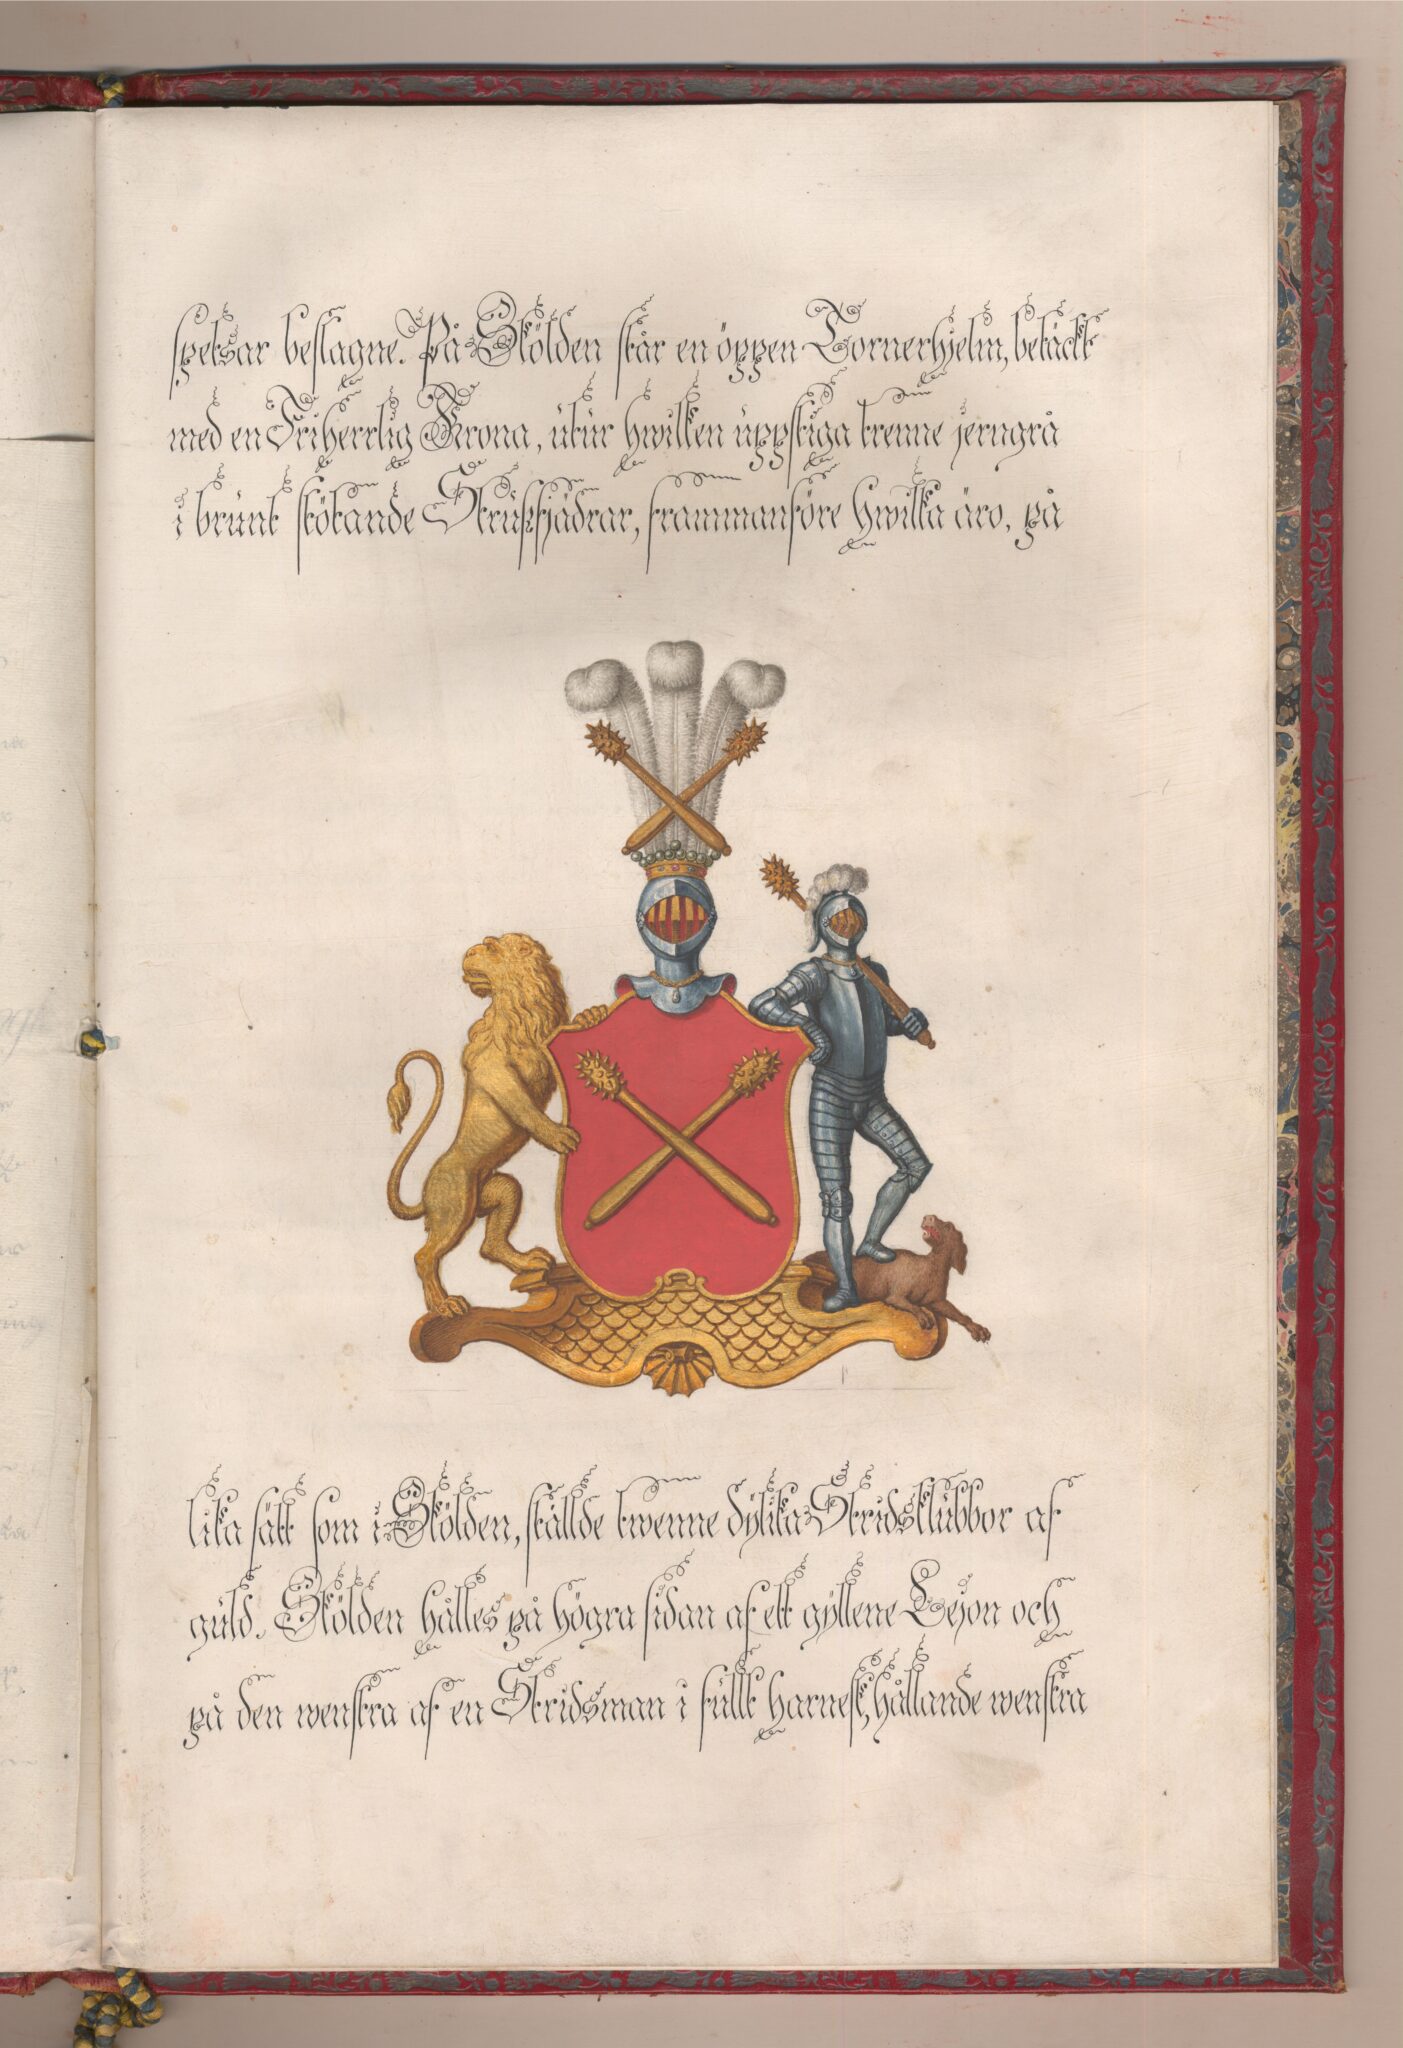 spetsar beslagne. På Skölden står en öppen Tornerhjelm, betäckt
med en Friherrlig Krona, utur hwilken uppstiga trenne jerngrå
i brunt stötande Strutsfjädrar, frammanföre hwilka äro, på
lika sätt som i Skölden, ställde twenne dylika Stridsklubbor af
guld. Skölden hålles på högra sidan af ett gyllene Lejon och
på den wenstra af en Stridsman i fullt harnesk, hållande wenstra